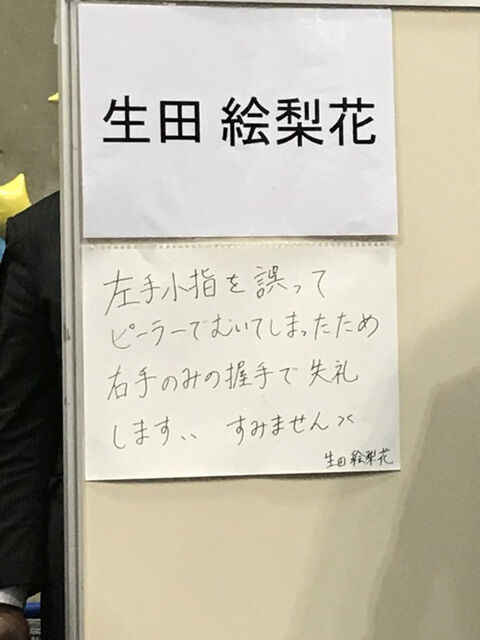 生田 絵梨花
左手小指を誤って
ピーラーでむいてしまったため
右手のみの握手で失礼
します、、 すみません><
生田絵梨花